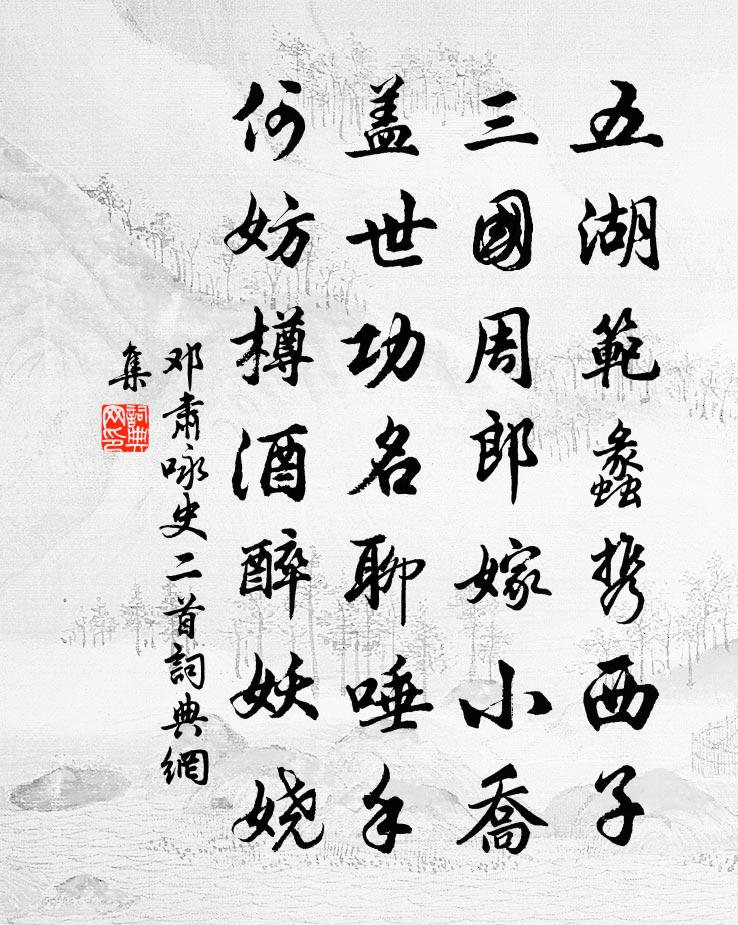 五湖範蠡携西子
三國周郎嫁小喬
盖世功名聊唾手
何妨樽酒醉妖娆
邓肅咏史二首詞典網
集
詞典
网印